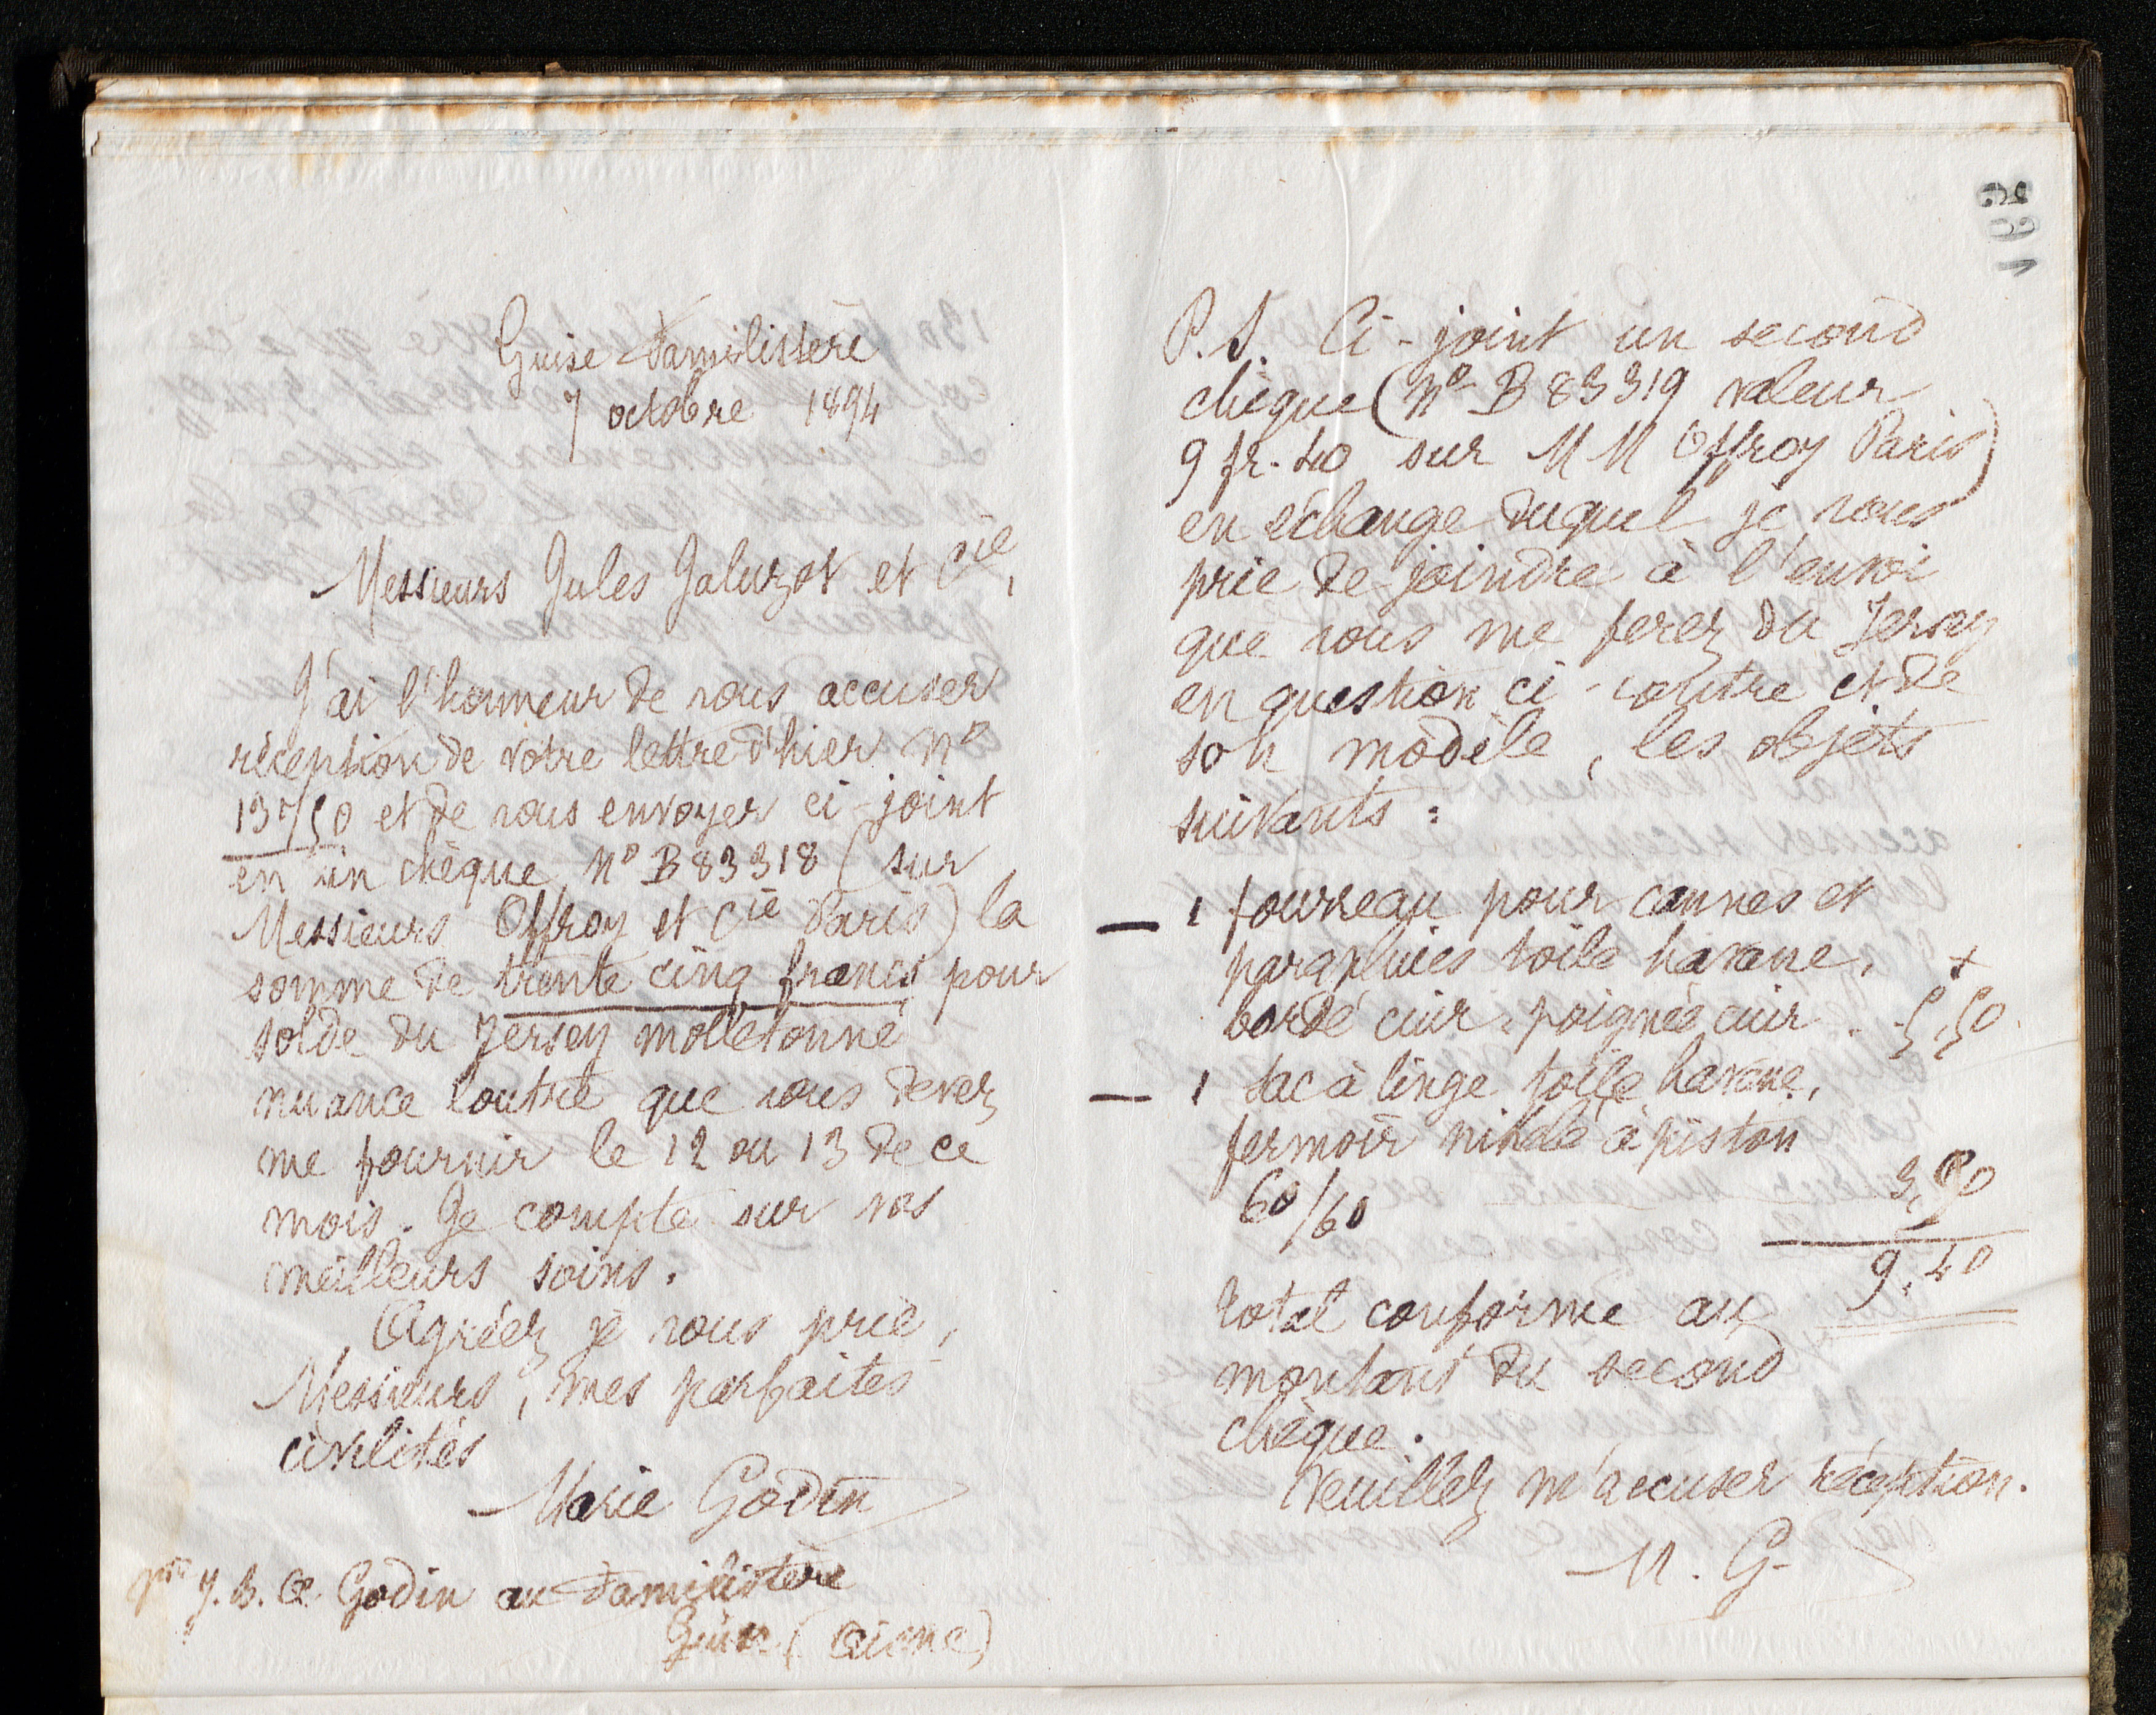 Guise Familistère
7 octobre 1894
Messieurs Jules Jaluzot et Cie,
J'ai l'honneur de vous accuser
réception de votre lettre d'hier N°
13750 et de vous envoyer ci-joint
en un chèque N° B83318 (sur
Messieurs Offroy et Cie Paris) la
somme de trente cinq francs pour
solde du Jersey molletonné
nuance loutre que vous devez
me fournir le 12 ou 13 de ce
mois. Je compte sur vos
meilleurs soins.
Agréez je vous prie,
Messieurs, mes parfaites
civilités
Marie Godin
J. B. A. Godin au Familistère
Guise (Aisne)
195
P.S. Ci-joint un second
chèque (N° B 83319 valeur
9 fr. 40 sur M M Offroy Paris)
en échange duquel je vous
prie de joindre à l'envoi
que vous me ferez du Jersey
en question ci-contre et de
son modèle, les objets
suivants :
— 1 fourreau pour cannes et
parapluies toile havane,
bordé cuir, poignée cuir . . 5,50
— 1 sac à linge toile havane,
fermoir nikelé à piston
60/60 3,90
9.40
total conforme au
montant du second
chèque.
Veuillez m'accuser réception.
M. G